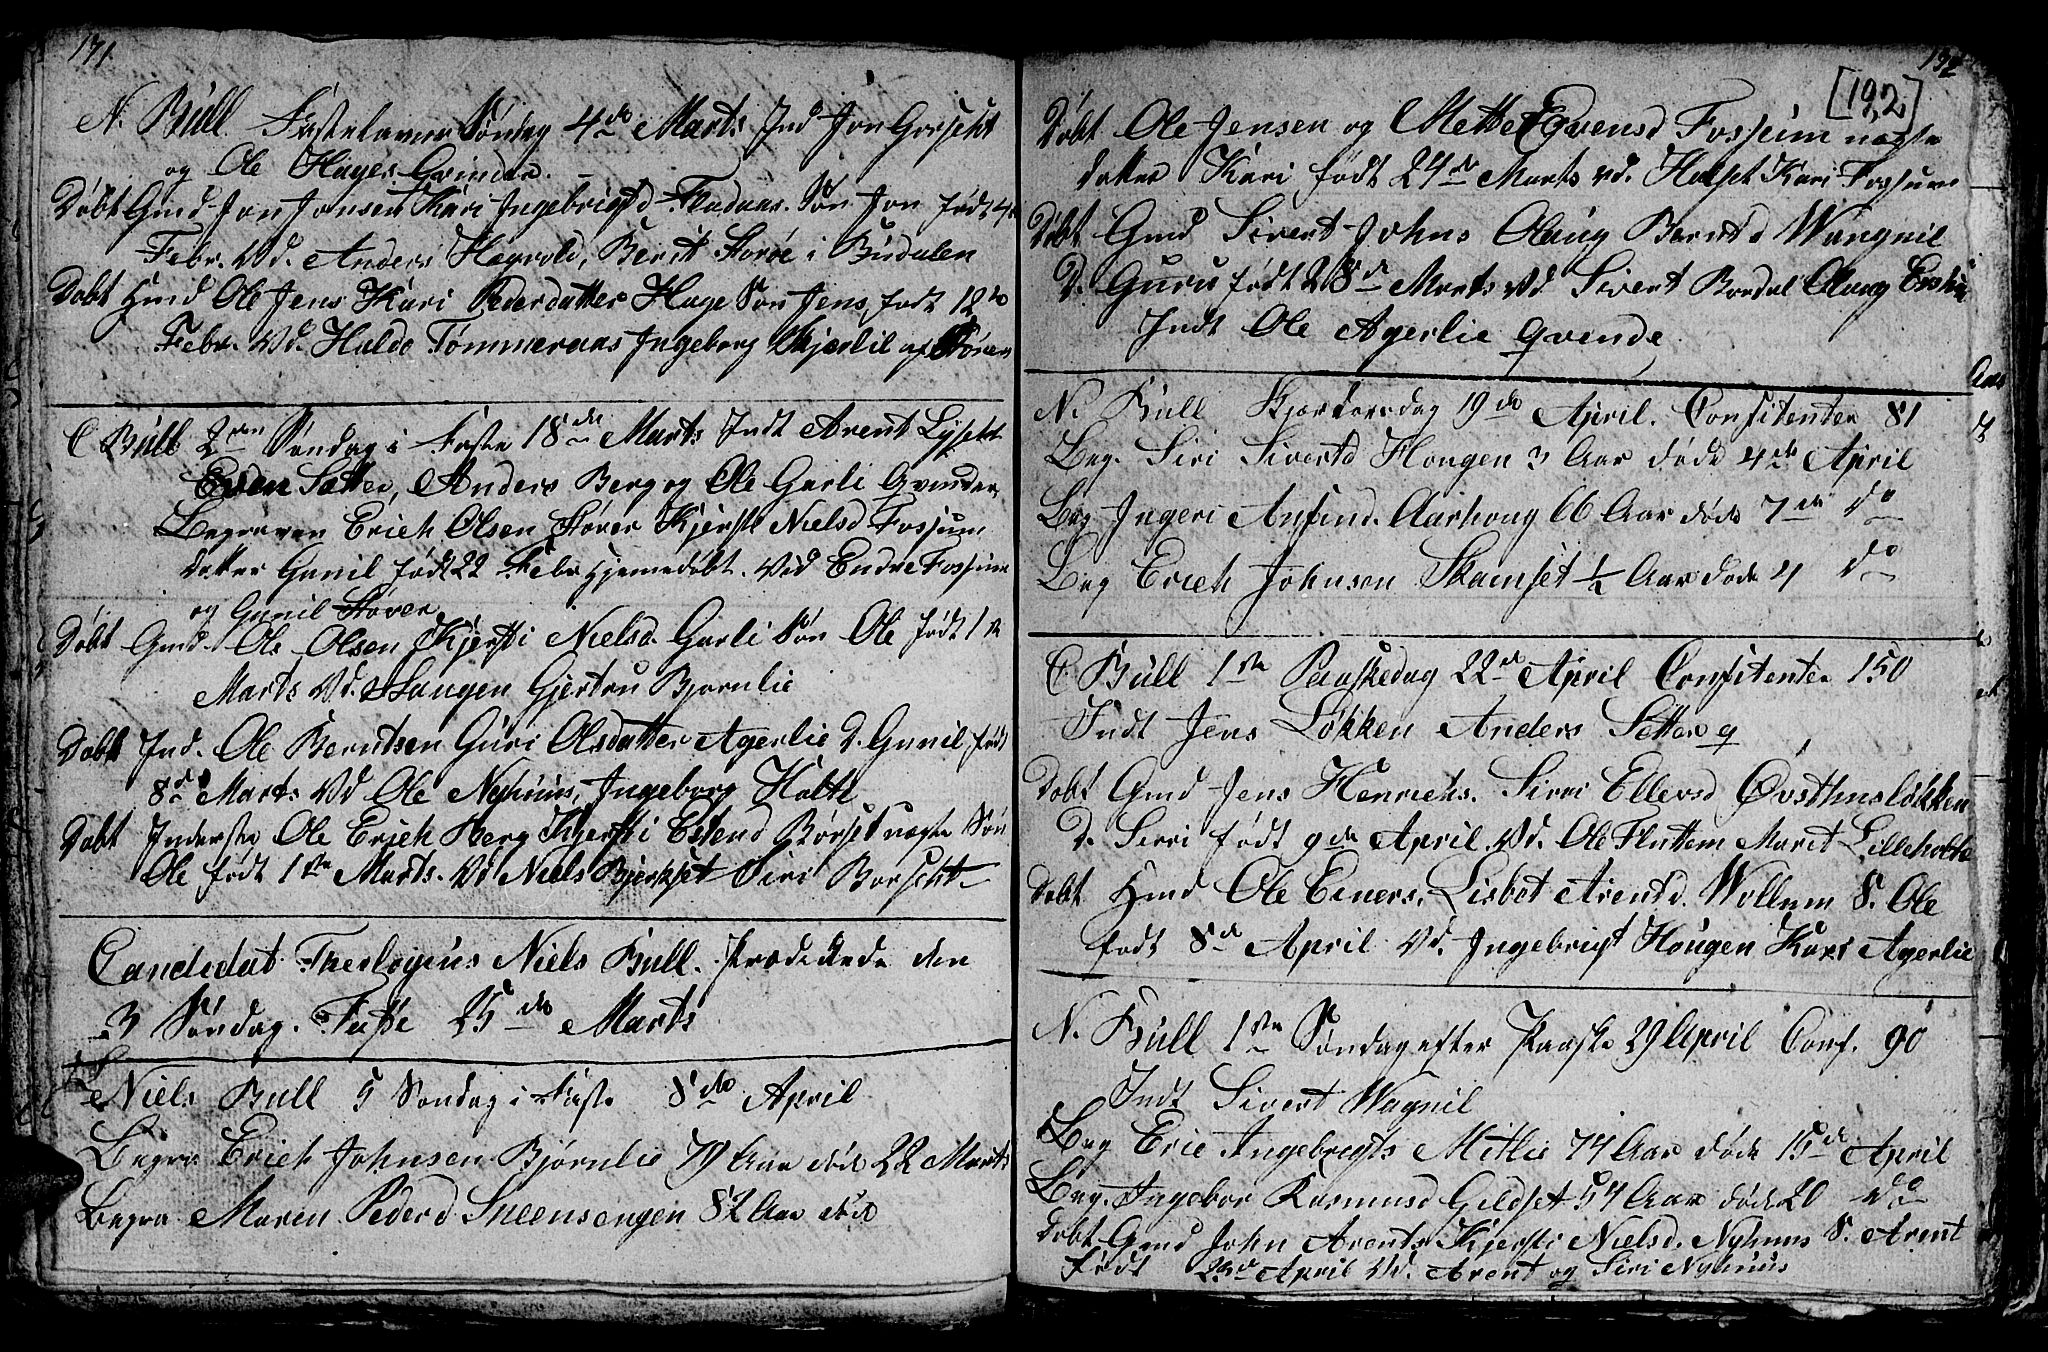 171.
N. Bull Fastelavns Søndag 4de Marts Ind Jon
og Ole Hages Qvinder.
Døbt Gmd Jon Jonsen Kari Ingebrigtsd Fladaas. Søn Jon født 4de
Febr. Vd. Anders Hegvold, Berit Storøe i Budalen
Døbt Hmd Ole Jens Kari Pedersdatter Hage Søn Jens født 12te
Febr. Vd. Haldo Tømmeraas Ingeborg Kjerlie af Støren
C Bull 2den Søndag i Faste 18de Marts Indt Arent
Even Sætter, Anders Berg og Ole Garli Qvinder
Begraven Erich Olsen Støver Kjersti Nielsd Fossum
datter Gunil født 22 Febr Hjemedøbt. Vid Endre Fossum
og Gunil Støver
Døbt Gmd. Ole Olsen Kjersti Nielsd. Garli Søn Ole født 1te
Marts Vd. Haugen Gjertru Bjørnlie
Døbt Ind. Ole Berntsen Guri Olsdatter Agerlie D. Gunil, født
8de Marts Vd Ole Nyhuus, Ingeborg Holte
Døbt Inderste Ole Erich Berg Kjersti Estend Børset uægte Søn
Ole født 1ste Marts. Vd Niels Bjerkset Siri
Candidat Theologius Niels Bull. Prædikede den
3 Søndag. Faste 25de Marts
Niels Bull 5 Søndag i Faste 8de April
Begra Erich Johnsen Bjørnlie 79 Aar død 22 Marts
Begra Maren Pederd Sneensengen 82 Aar
192
[192]
Døbt Ole Jensen og Mette Fossum uægte
datter Kari født 24de Marts Vd. Halset Kari Fossum
Døbt Gmd Sivert Johns Olaug Berntd Wangnil
D. Guru født 28de Marts Vd Sivert Bordal Olaug
Indt Ole Agerlie qvinde
N. Bull Skjærtorsdag 19de April. Confitenter 81
Beg. Siri Sivertd Hougen 3 Aar døde 4de April
Beg Ingeri Anfind. Aarhoug 66 Aar døde 7de do
Beg Erich Johnsen Skamset 1/2 Aar døde 4 do
C Bull 1ste Paaskedag 22de April Confitenter 150
Indt Jens Løkken Anders Setter q
Døbt Gmd Jens Henrichs. Sirri Ellevsd Østhusløkken
D. Sirri født 9de April Vd. Ole Fluttem Marit Lilleholte
Døbt Hmd Ole Einers. Lisbet Arentd. Wollum S. Ole
født 8de April Vd. Ingebrigt Hougen Kari Agerlie
N. Bull 1ste Søndag efter Paaske 29 April Conf. 90
Indt Sivert Wagnil
Beg Eric Ingebregts Mitlie 74 Aar døde 15de April
Beg. Ingebor Rasmusd Gildset 54 Aar døde 20 do
Døbt Gmd John Arents Kjersti Nielsd. Nyhuus S. Arent
Født 23de April Vd. Arent og Siri Nyhuus